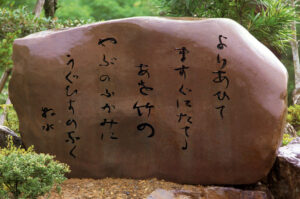 よりあひて
ますぐにたてる
あを竹の
やぶのふかみに
うぐひすのなく